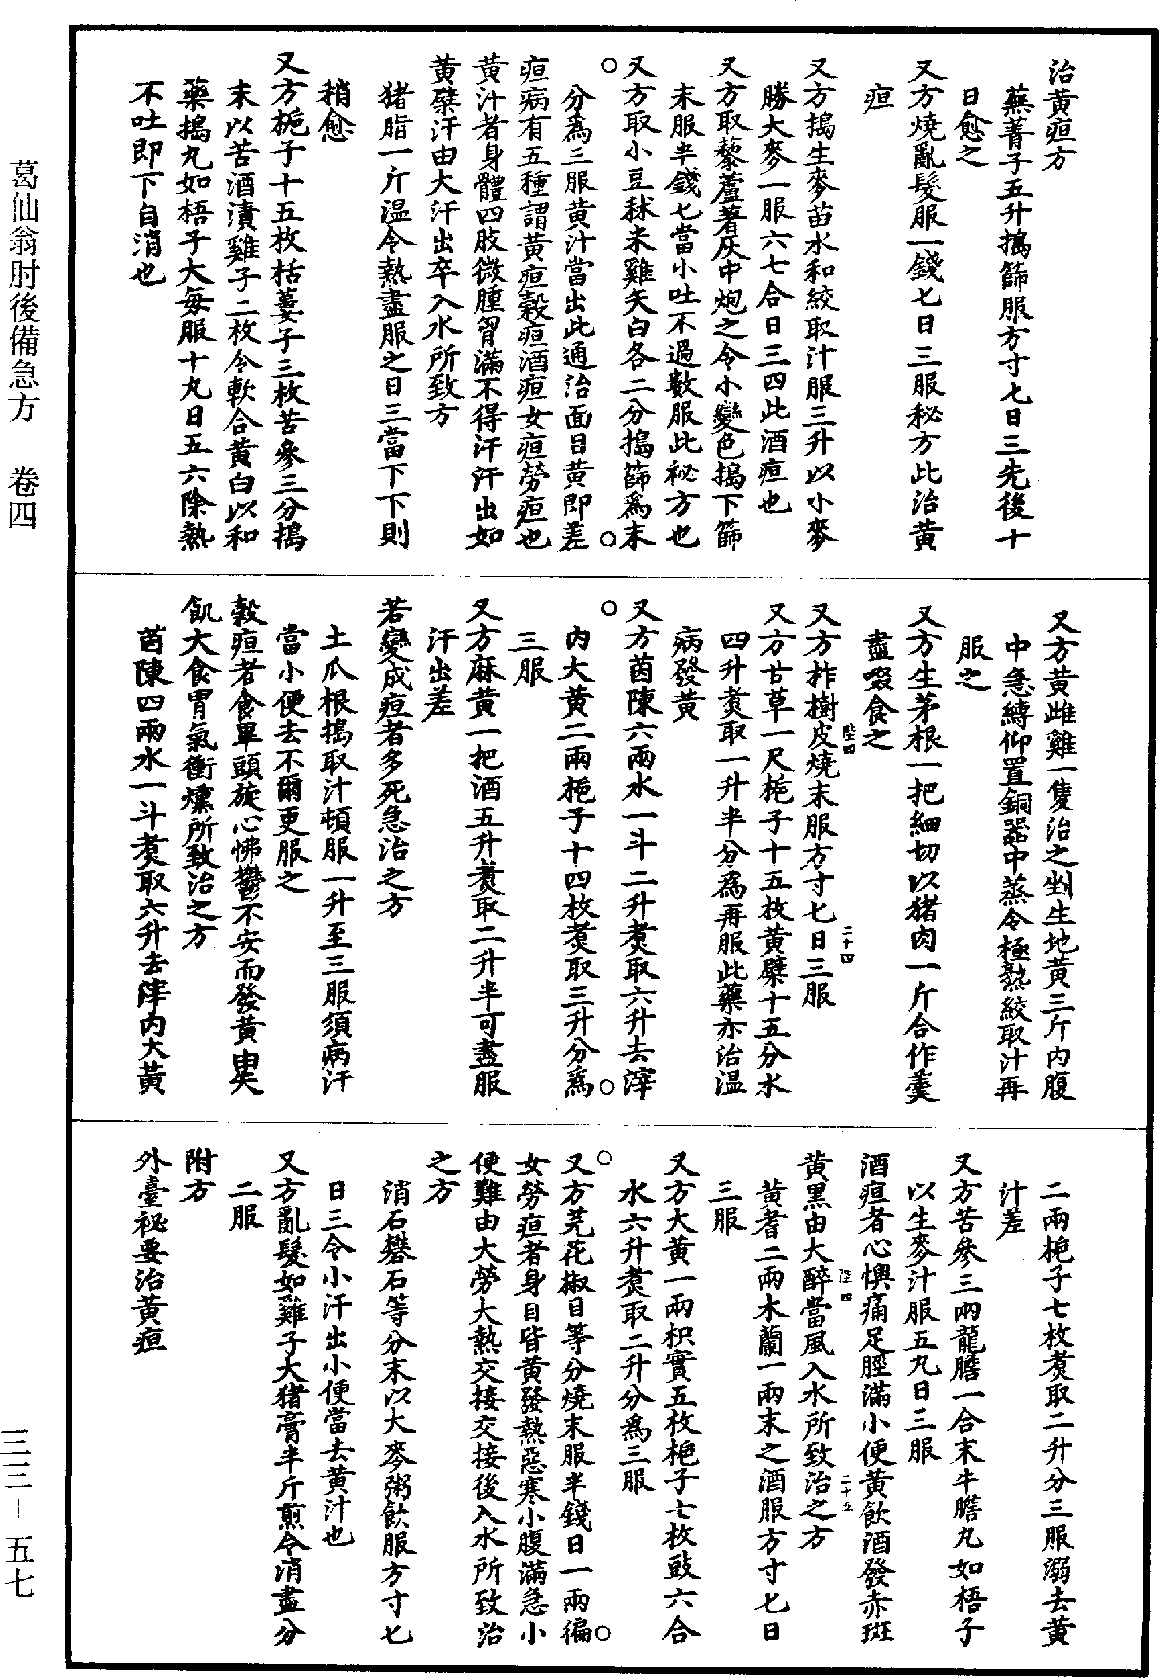 治黃疸方
蕪菁子五升搗篩服方寸匕日三先後十
日愈之
又方燒亂髮服一錢匕日三服秘方此治黃
疸
又方搗生麥苗水和絞取汁服三升以小麥
勝大麥一服六七合日三四此酒疸也
又方取藜蘆著灰中炮之令小變色搗下篩
末服半錢匕當小吐不過數服此祕方也
又方取小豆秫米雞矢白各二分搗篩爲末
分爲三服黃汁當出此通治面目黃即差
疸病有五種謂黃疸穀疸酒疸女疸勞疸也
黃汁者身體四肢微腫胷滿不得汗汗出如
黃蘗汗由大汗出卒入水所致方
猪脂一斤温令熱盡服之日三當下下則
稍愈
又方梔子十五枚栝蔞子三枚苦參三分搗
末以苦酒漬雞子二枚令軟合黃白以和
藥搗丸如梧子大每服十丸日五六除熱
不吐即下自消也
又方黃雌雞一隻治之剉生地黃三斤内腹
中急縛仰置銅器中蒸令極熟絞取汁再
服之
又方生茅根一把細切以猪肉一斤合作羹
盡啜食之
又方柞樹皮燒末服方寸匕日三服
陛四
二十四
又方甘草一尺梔子十五枚黃蘗十五分水
四升煑取一升半分爲再服此藥亦治温
病發黃
又方茵陳六兩水一斗二升煑取六升去滓
内大黃二兩梔子十四枚煑取三升分爲
三服
又方麻黃一把酒五升煑取二升半可盡服
汗出差
若變成疸者多死急治之方
土瓜根搗取汁頓服一升至三服須病汗
當小便去不爾更服之
穀疸者食畢頭旋心怫鬱不安而發黃由失
飢大食胃氣衝燻所致治之方
茵陳四兩水一斗煑取六升去滓内大黃
二兩梔子七枚煑取二升分三服溺去黃
汁差
又方苦參三兩龍膽一合末牛膽丸如梧子
以生麥汁服五丸日三服
酒疸者心懊痛足脛滿小便黃飲酒發赤斑
黃黑由大醉當風入水所致治之方
陛四
二十五
黃耆二兩木蘭一兩末之酒服方寸匕日
三服
又方大黃一兩枳實五枚梔子七枚豉六合
水六升煑取二升分爲三服
又方芫花椒目等分燒末服半錢日一兩徧
女勞疸者身目皆黃發熱惡寒小腹滿急小
便難由大勞大熱交接交接後入水所致治
之方
消石礬石等分末以大麥粥飲服方寸匕
日三令小汗出小便當去黃汁也
又方亂髮如雞子大猪膏半斤煎令消盡分
二服
附方
外臺祕要治黃疸
葛仙翁肘後備急方 卷四
三三－五七